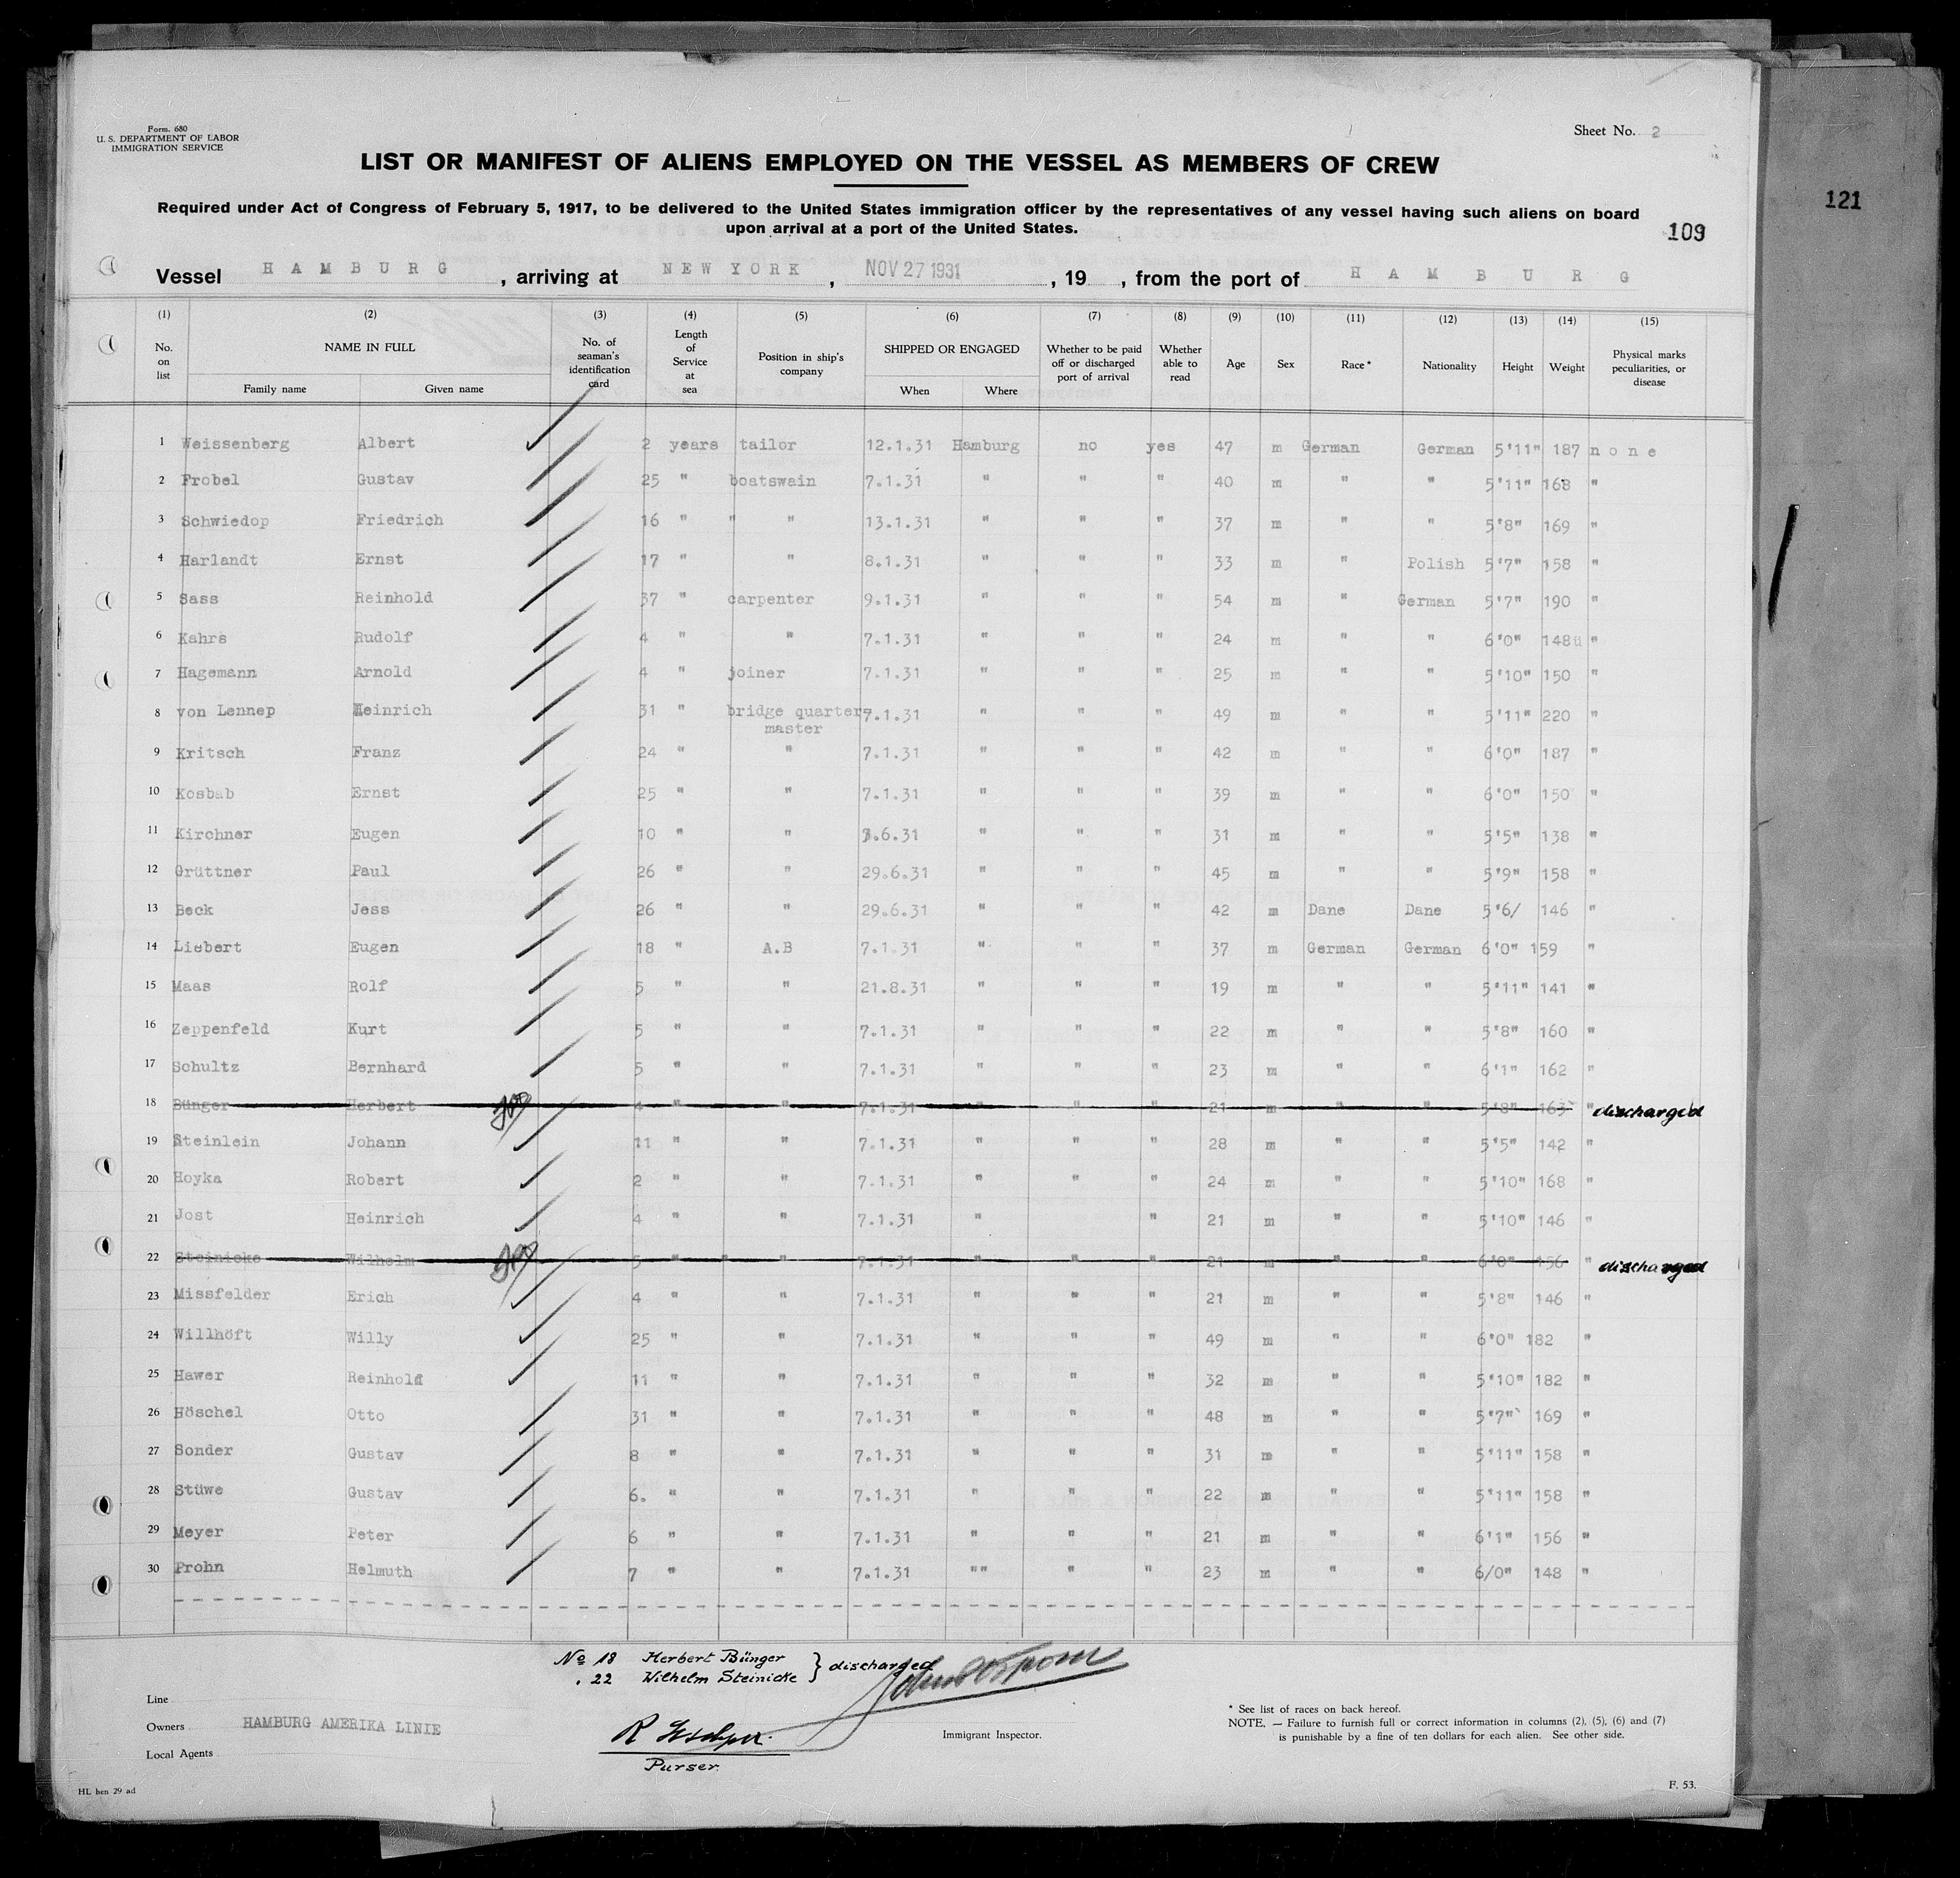 Form. 680
U. S. DEPARTMENT OF LABOR
IMMIGRATION SERVICE
Sheet No. 2
LIST OR MANIFEST OF ALIENS EMPLOYED ON THE VESSEL AS MEMBERS OF CREW
Required under Act of Congress of February 5, 1917, to be delivered to the United States immigration officer by the representatives of any vessel having such aliens on board
upon arrival at a port of the United States.
109
121
Vessel HAMBURG , arriving at NEW YORK , NOV 27 1931 , 19 , from the port of HAMBURG
(1) (2) (3) (4) (5) (6) (7) (8) (9) (10) (11) (12) (13) (14) (15)
No. on list NAME IN FULL Family name Given name No. of seaman's identification card Length of Service at sea Position in ship's company SHIPPED OR ENGAGED When Where Whether to be paid off or discharged port of arrival Whether able to read Age Sex Race* Nationality Height Weight Physical marks peculiarities, or disease
1 Weissenberg Albert 2 years tailor 12.1.31 Hamburg no yes 47 m German German 5'11" 187 none
2 Frobel Gustav 25 " boatswain 7.1.31 " " " 40 m " " 5'11" 168 "
3 Schwiedop Friedrich 16 " " " 13.1.31 " " " 37 m " " 5'8" 169 "
4 Harlandt Ernst 17 " " 8.1.31 " " " 33 m " Polish 5'7" 158 "
5 Sass Reinhold 37 " carpenter 9.1.31 " " " 54 m " German 5'7" 190 "
6 Kahrs Rudolf 4 " " 7.1.31 " " " 24 m " " 6'0" 148 "
7 Hagemann Arnold 4 " joiner 7.1.31 " " " 25 m " " 5'10" 150 "
8 von Lennep Heinrich 31 " bridge quarter master 7.1.31 " " " 49 m " " 5'11" 220 "
9 Kritsch Franz 24 " " 7.1.31 " " " 42 m " " 6'0" 187 "
10 Kosbab Ernst 25 " " 7.1.31 " " " 39 m " " 6'0" 150 "
11 Kirchner Eugen 10 " " .6.31 " " " 31 m " " 5'5" 138 "
12 Grüttner Paul 26 " " 29.6.31 " " " 45 m " " 5'9" 158 "
13 Beck Jess 26 " " 29.6.31 " " " 42 m Dane Dane 5'6/ 146 "
14 Liebert Eugen 18 " A.B 7.1.31 " " " 37 m German German 6'0" 159 "
15 Maas Rolf 5 " " 21.8.31 " " " 19 m " " 5'11" 141 "
16 Zeppenfeld Kurt 5 " " 7.1.31 " " " 22 m " " 5'8" 160 "
17 Schultz Bernhard 5 " " 7.1.31 " " " 23 m " " 6'1" 162 "
18 Bünger Herbert 4 " " 7.1.31 " " " 21 m " " 5'8" 163 " discharged
19 Steinlein Johann 11 " " 7.1.31 " " " 28 m " " 5'5" 142 "
20 Hoyka Robert 2 " " 7.1.31 " " " 24 m " " 5'10" 168 "
21 Jost Heinrich 4 " " 7.1.31 " " 21 m " " 5'10" 146 "
22 Steinicke Wilhelm 5 " " " 7.1.31 " " " 21 m " " 6'0" 156 " discharged
23 Missfelder Erich 4 " " 7.1.31 " " " 21 m " " 5'8" 146 "
24 Willhöft Willy 25 " " 7.1.31 " " " 49 m " " 6'0" 182 "
25 Hawer Reinhold 11 " " 7.1.31 " " " 32 m " " 5'10" 182 "
26 Höschel Otto 31 " " 7.1.31 " " " 48 m " " 5'7" 169 "
27 Sonder Gustav 8 " " 7.1.31 " " " 31 m " " 5'11" 158 "
28 Stüwe Gustav 6. " " 7.1.31 " " " 22 m " " 5'11" 158 "
29 Meyer Peter 6 " " 7.1.31 " " " 21 m " " 6'1" 156 "
30 Prohn Helmuth 7 " " 7.1.31 "" " " 23 m " " 6/0" 148 "
No 18 Herbert Bünger } discharged
" 22 Wilhelm Steinicke
Line
Owners HAMBURG AMERIKA LINIE
Local Agents
R
Purser.
Immigrant Inspector.
* See list of races on back hereof.
NOTE. — Failure to furnish full or correct information in columns (2), (5), (6) and (7)
is punishable by a fine of ten dollars for each alien. See other side.
HL hen 29 ad
F. 53.